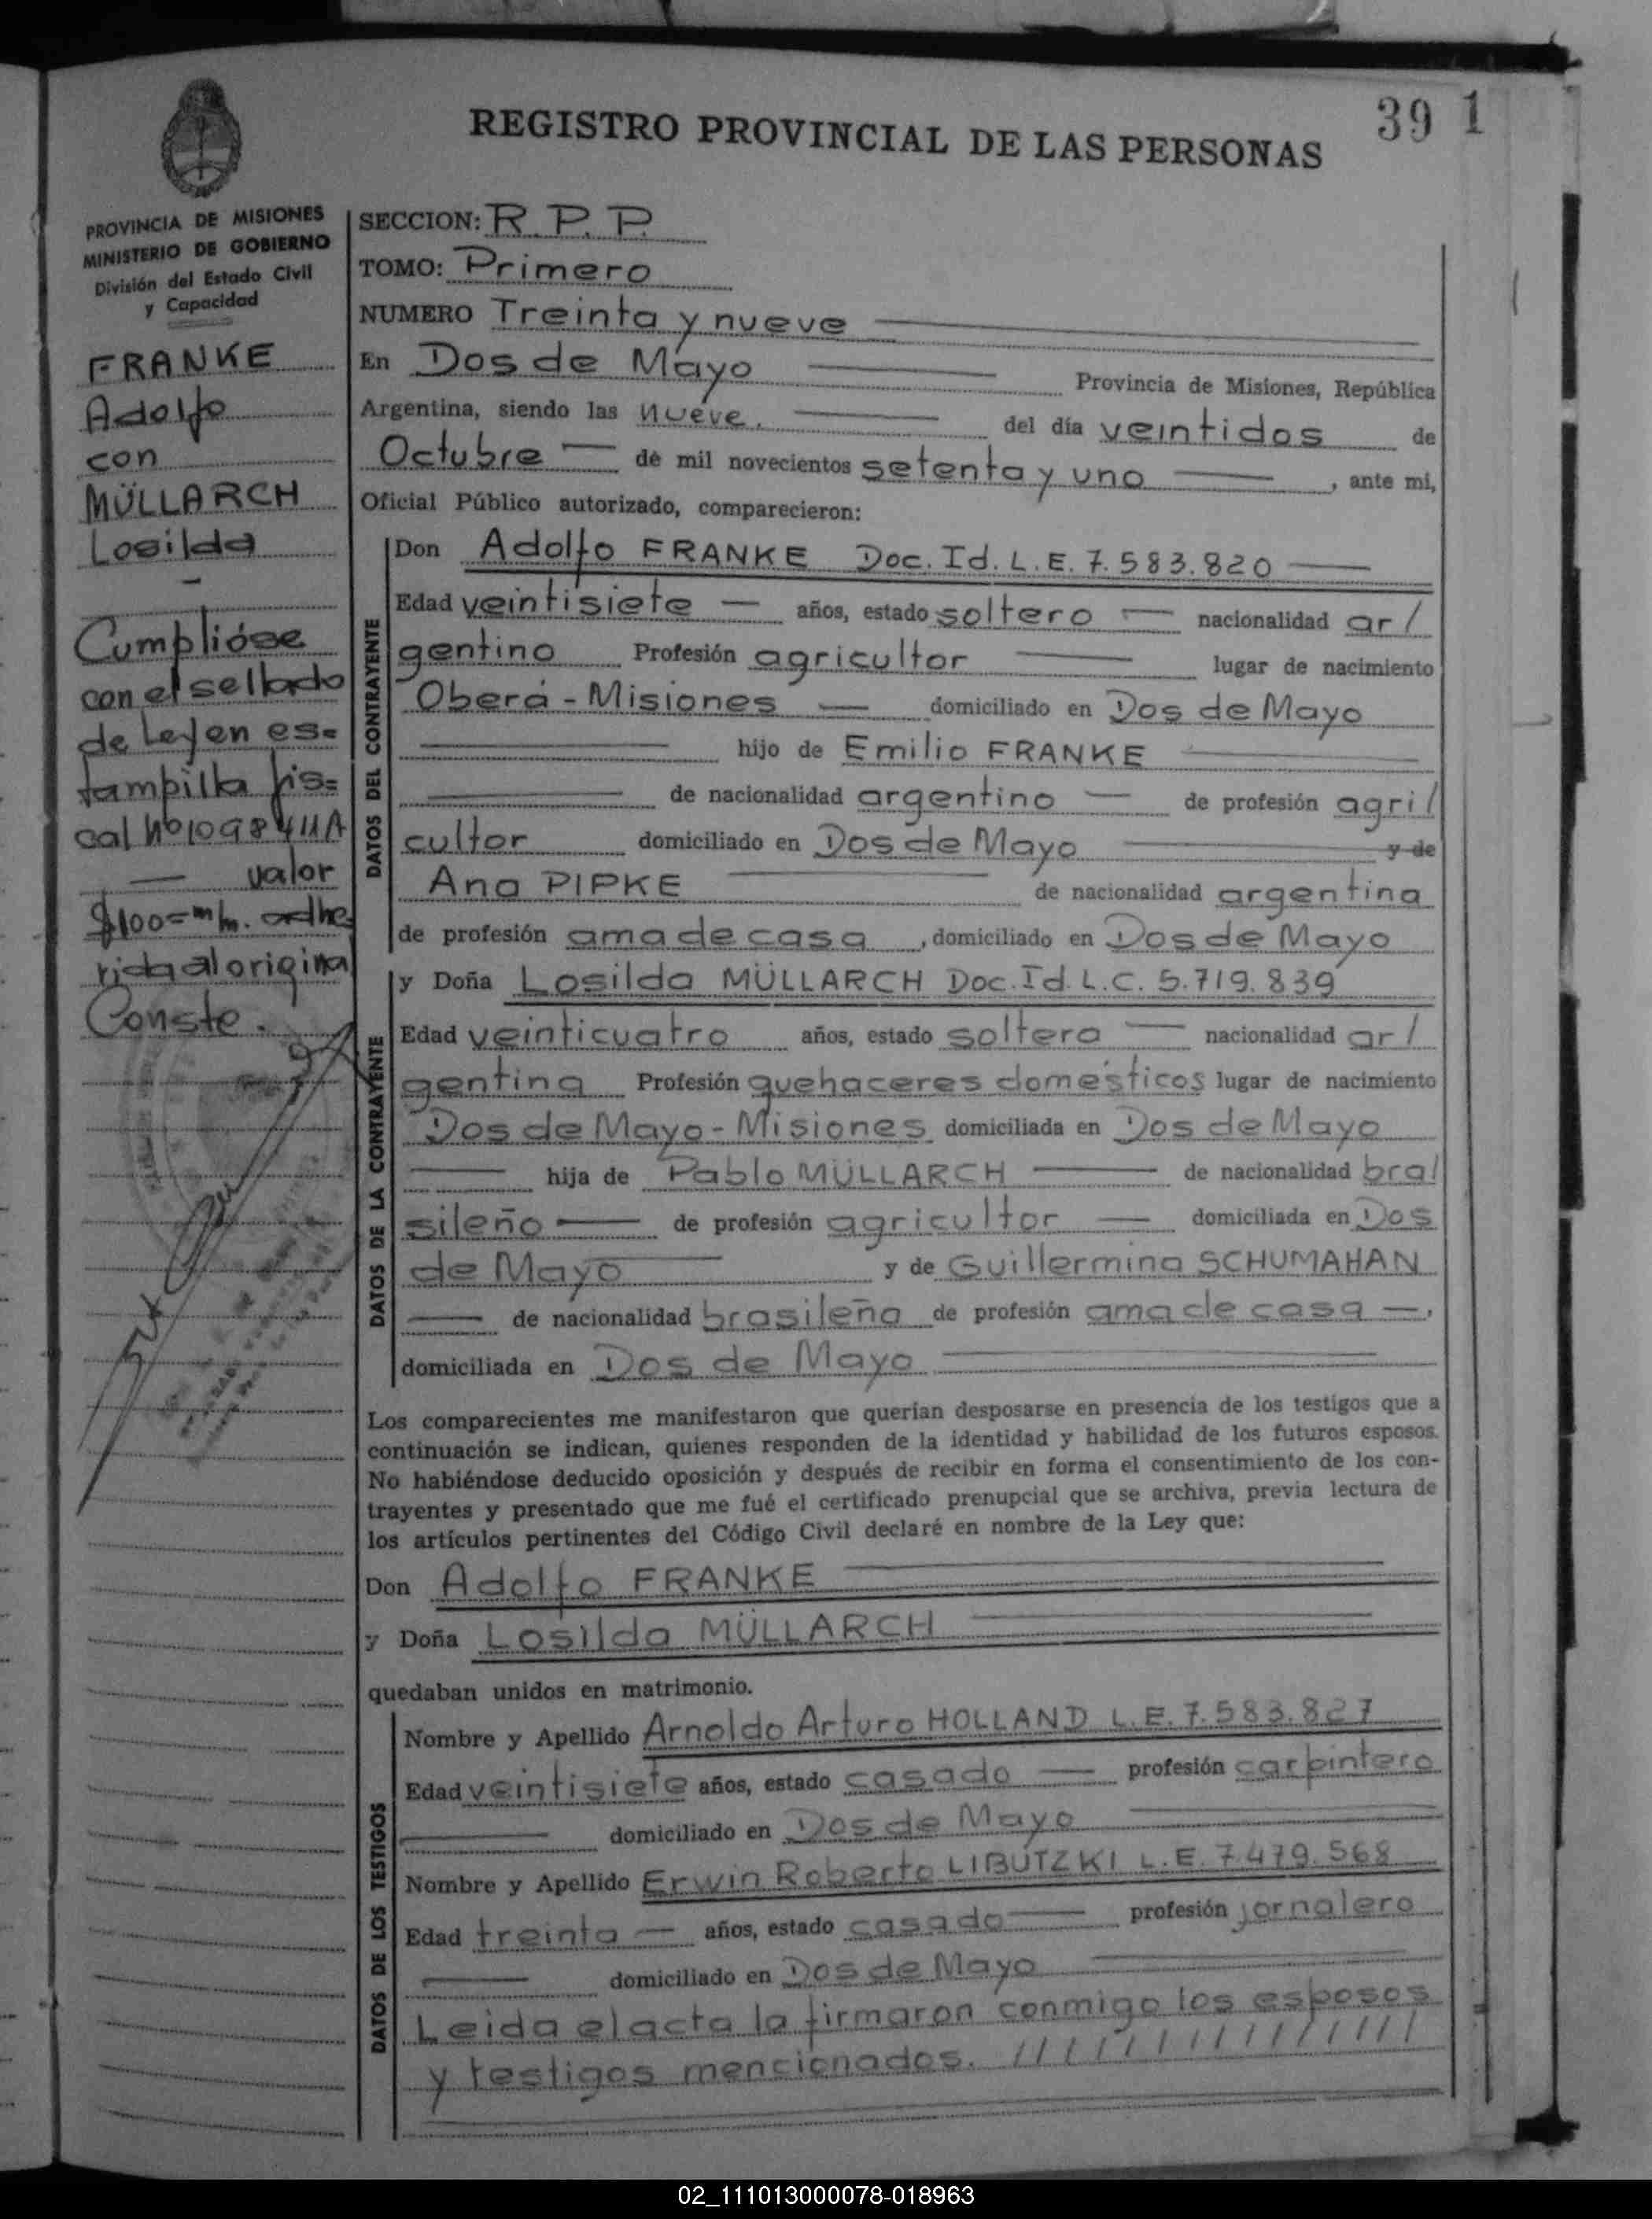 39 1
REGISTRO PROVINCIAL DE LAS PERSONAS
PROVINCIA DE MISIONES
MINISTERIO DE GOBIERNO
División del Estado Civil
y Capacidad
FRANKE
Adolfo
con
MÜLLARCH
Losilda
-
Cumplióse
con el sellado
de Ley en es=
tampilla fis=
cal Nº 1098411A
— valor
$100= m/n. adhe
rida al original
Conste.
SECCION: R. P. P.
TOMO: Primero
NUMERO Treinta y nueve
En Dos de Mayo Provincia de Misiones, República
Argentina, siendo las nueve. del día veintidos de
Octubre — de mil novecientos setenta y uno — , ante mi,
Oficial Público autorizado, comparecieron:
DATOS DEL CONTRAYENTE
Don Adolfo FRANKE Doc. Id. L. E. 7.583.820 —
Edad veintisiete — años, estado soltero — nacionalidad ar/
gentino Profesión agricultor — lugar de nacimiento
Oberá - Misiones — domiciliado en Dos de Mayo
— hijo de Emilio FRANKE —
— de nacionalidad argentino — de profesión agri/
cultor domiciliado en Dos de Mayo — y de
Ana PIPKE — de nacionalidad argentina
de profesión ama de casa , domiciliado en Dos de Mayo
DATOS DE LA CONTRAYENTE
y Doña Losilda MÜLLARCH Doc. Id. L. C. 5.719.839
Edad veinticuatro años, estado soltera — nacionalidad ar/
gentina Profesión quehaceres domésticos lugar de nacimiento
Dos de Mayo - Misiones domiciliada en Dos de Mayo
— hija de Pablo MÜLLARCH — de nacionalidad bra/
sileño — de profesión agricultor — domiciliada en Dos
de Mayo — y de Guillermina SCHUMAHAN
— de nacionalidad brasileña de profesión ama de casa —,
domiciliada en Dos de Mayo —
Los comparecientes me manifestaron que querían desposarse en presencia de los testigos que a
continuación se indican, quienes responden de la identidad y habilidad de los futuros esposos.
No habiéndose deducido oposición y después de recibir en forma el consentimiento de los con-
trayentes y presentado que me fué el certificado prenupcial que se archiva, previa lectura de
los artículos pertinentes del Código Civil declaré en nombre de la Ley que:
Don Adolfo FRANKE
y Doña Losilda MÜLLARCH
quedaban unidos en matrimonio.
DATOS DE LOS TESTIGOS
Nombre y Apellido Arnoldo Arturo HOLLAND L. E. 7.583.827
Edad veintisiete años, estado casado — profesión carpintero
— domiciliado en Dos de Mayo —
Nombre y Apellido Erwin Roberto LIBUTZKI L. E. 7.479.568
Edad treinta — años, estado casado — profesión jornalero
— domiciliado en Dos de Mayo —
Leida el acta la firmaron conmigo los esposos
y testigos mencionados. / / / / / / / / / / / / / / / /
02_111013000078-018963